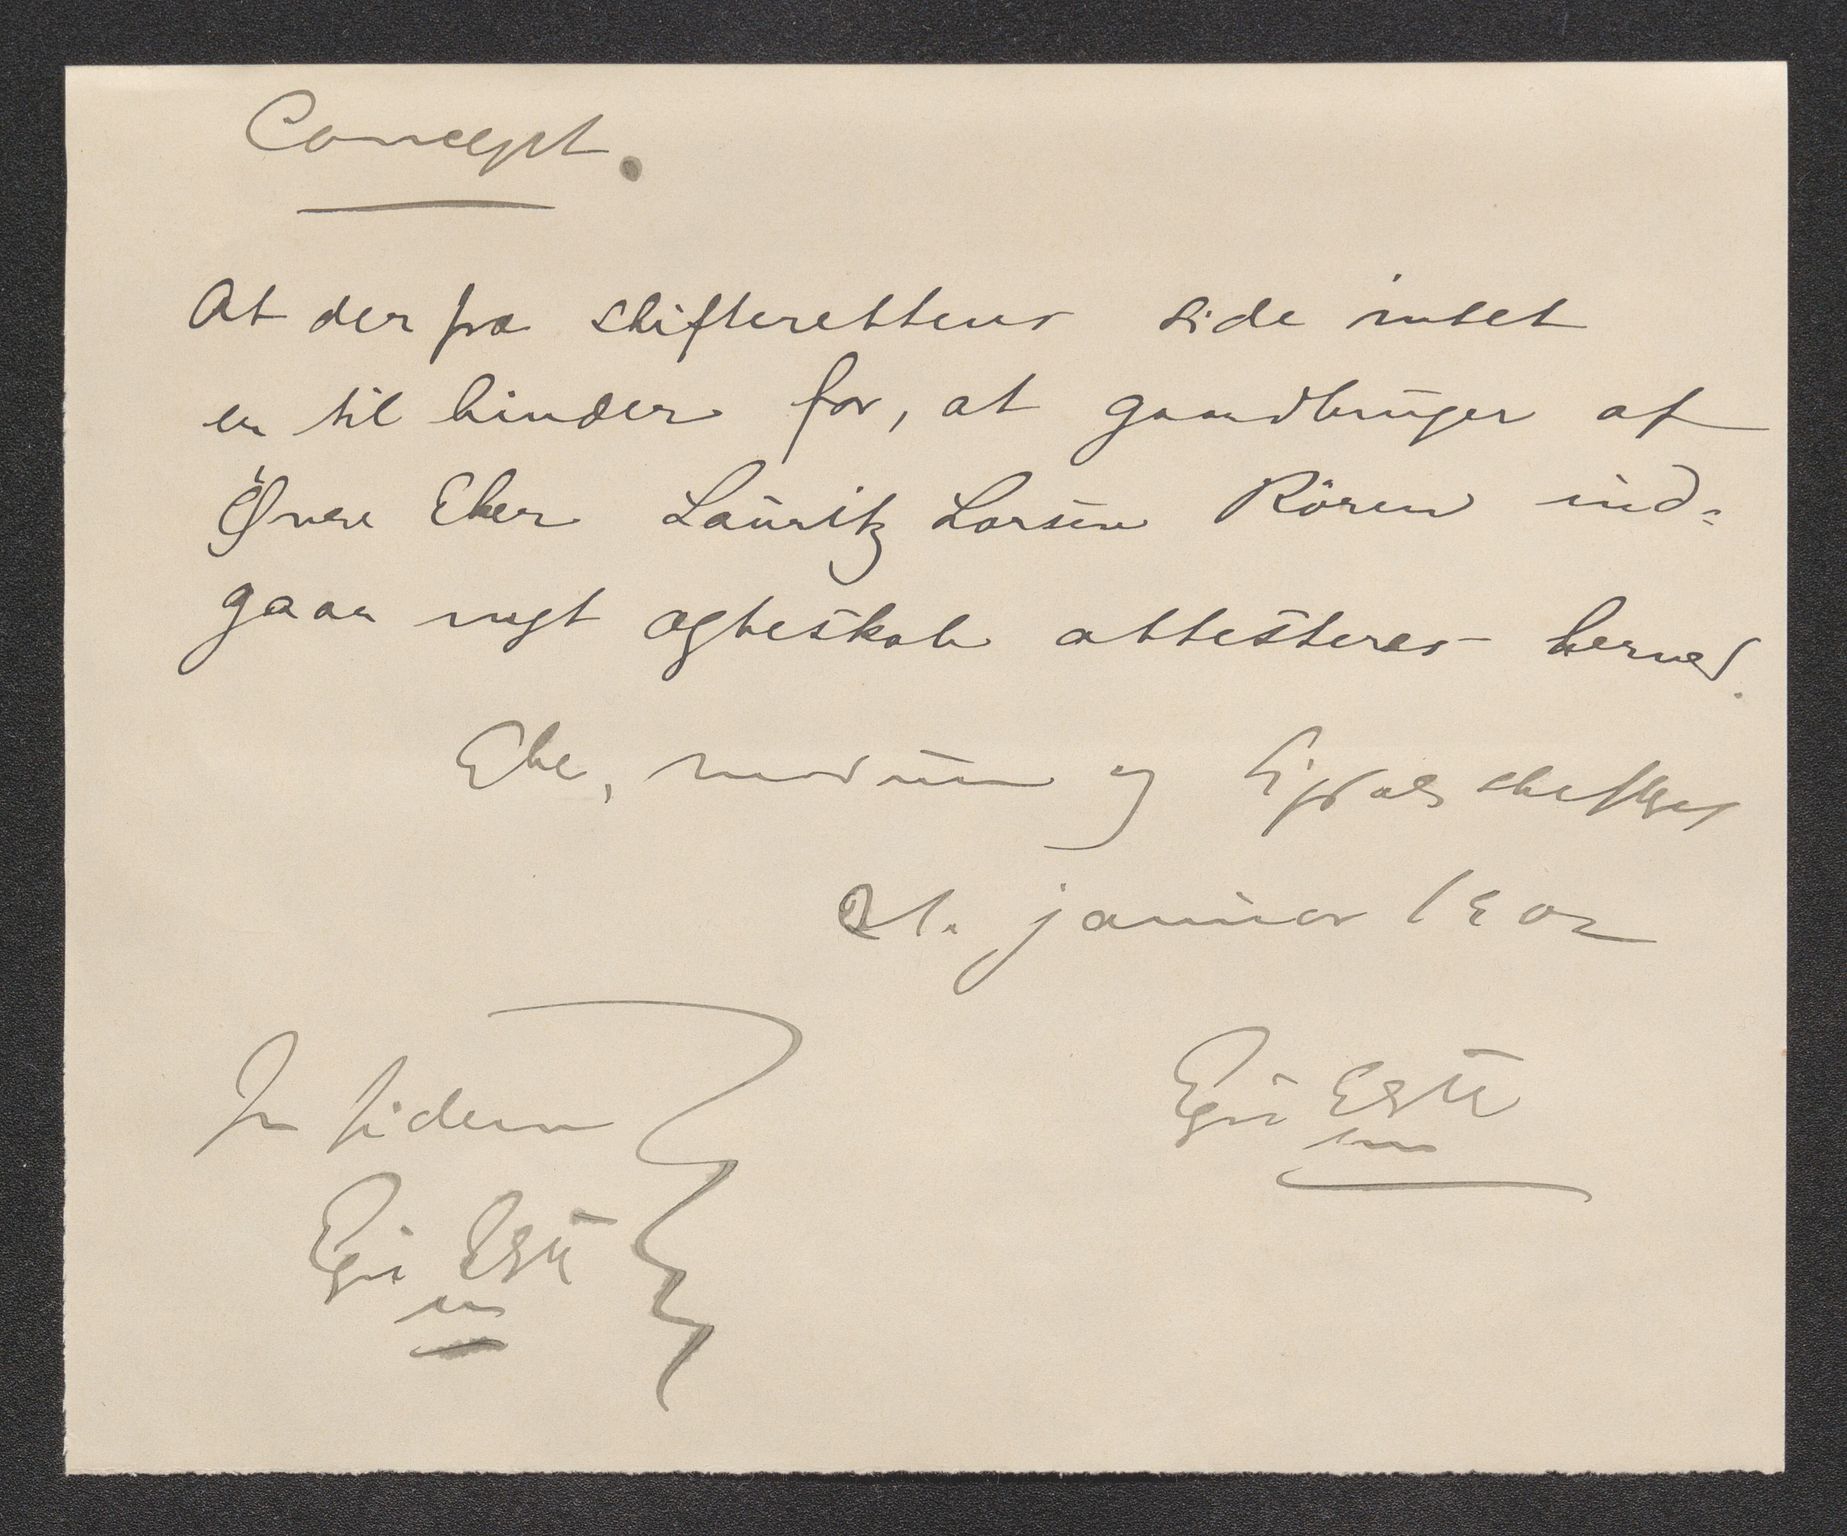 Concept.
At der fra skifterettens side intet
er til hinder for, at gaardbruger af
Øvre Eker Lauritz Larsen Røren ind=
gaar nyt ægteskab attesteres herved.
Eker, modum og Sigdals skifteret
21. januar 1902
In fidem